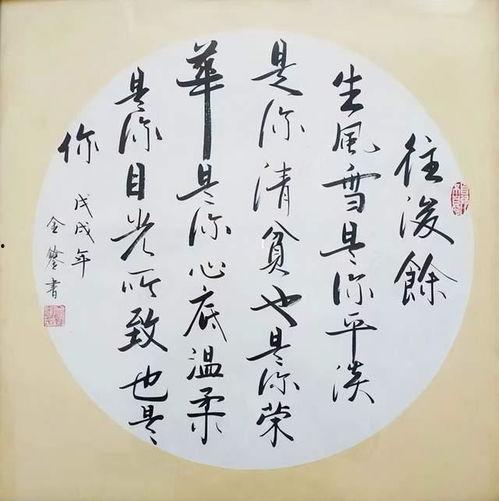 往後餘
生風雪是你平淡
是你清貧也是你荣
華是你心底温柔
是你目光所致也是
你
戊戌年
金 書